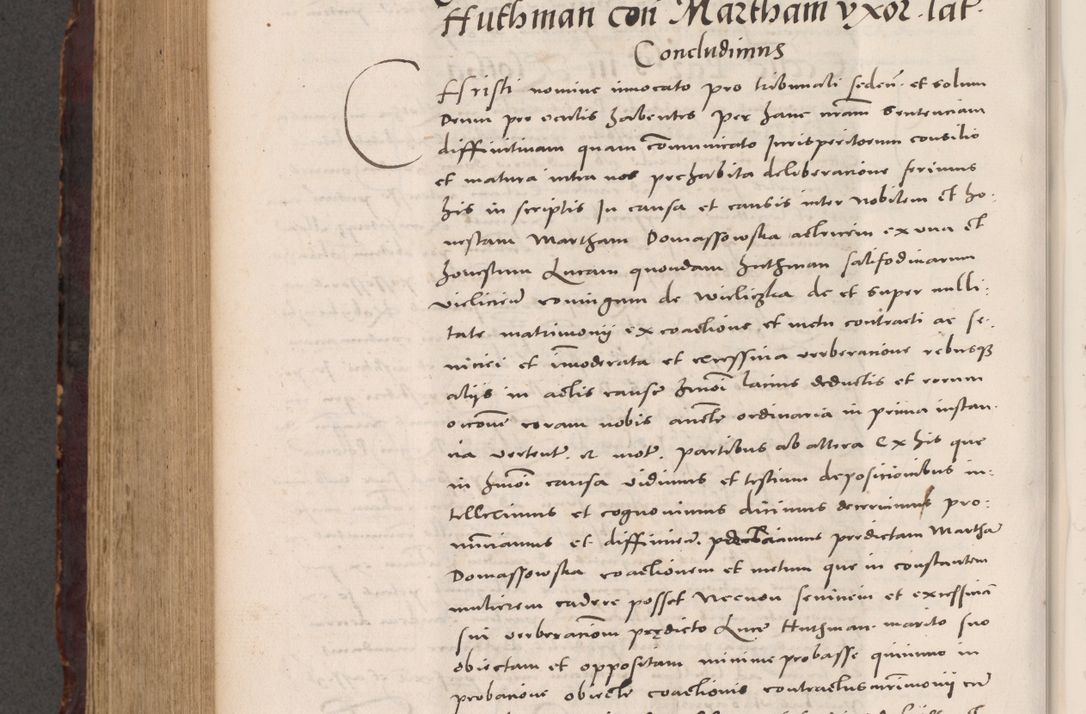 Huthman con Martham vxor. lat.
Concludimus
Christi nomine invocato pro tribunali seden. et solum
Deum pre oculis habentes Per hanc nram Sentenciam
diffinitivam quam communicato Jurisperitorum consilio
et matura intra nos prehabita deliberacione ferimus
his in scriptis In causa et causis inter Nobilem et ho-
nestam Martham Domassowska actricem ex vna et
honestum Lucam quondam Huthman salifodinarum
Vieliciens coniugem de Wieliczka de et super nulli-
tate matrimonij ex coactione et metu contracti ac se-
viciei et immoderata et excessiva verberacione rebusq
alijs in actis cause hmoi lacius deductis et eorum
occone coram nobis aucte ordinaria in prima instan-
cia vertent. et mot. partibus ab altera Ex his que
in hmoi causa vidimus et testium deposicionibus in-
telleximus et cognovimus dicimus decernimus pro-
nunciamus et diffinien. predictam Martha
Domassowska coactionem et metum que in constantem
mulierem cadere posset Necnon seviciem et excessiva
sui verberacionem predicto Luce Huthman marito suo
obiectam et oppositam minime probasse quinimo in
probacione obiecte coactionis contractus mrimonij